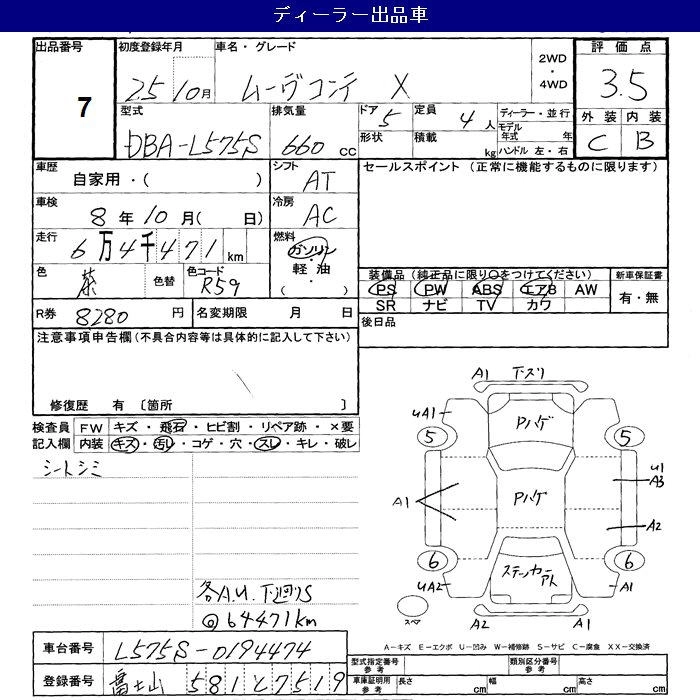 ディーラー出品車
出品番号 7
初度登録年月 25 10月
車名・グレード ムーヴコンテ X
2WD・4WD
評価点 3.5
外装 C 内装 B
型式 DBA-L575S
排気量 660 cc
ドア 5 形状
定員 4 人 積載 kg
ディーラー・並行
モデル年式 年
ハンドル 左・右
車歴 自家用・( )
シフト AT
セールスポイント (正常に機能するものに限ります)
車検 8年10月( 日)
冷房 AC
走行 6万4千471km
燃料 ガソリン・軽油・( )
色 茶 色替 色コード R59
装備品 (純正品に限り○をつけてください)
新車保証書
PS PW ABS エアB AW
有・無
SR ナビ TV カワ
R券 8280 円 名変期限 月 日
後日品
注意事項申告欄 (不具合内容等は具体的に記入して下さい)
修復歴 有 〔箇所 〕
検査員記入欄
FW キズ・飛石・ヒビ割・リペア跡・×要
内装 キズ・汚レ・コゲ・穴・スレ・キレ・破レ
シートシミ
各A.U.下廻りS
@64471km
A1 下スリ
UA1 Pハゲ
5 5
A1 Pハゲ U1 A3
A2
6 6
UA2 ステッカーアト A1
スペア A2 A1
A-キズ E-エクボ U-凹み W-補修跡 S-サビ C-腐食 XX-交換済
車台番号 L575S-0194474
型式指定番号 参考
類別区分番号 参考
登録番号 富士山 581 ヒ 7519
車庫証明用 参考
長さ cm 幅 cm 高さ cm